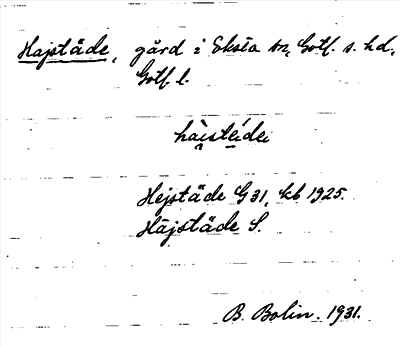 Hajstäde, gård i Eksta sn, Gotl. s. hd,
Gotl. l.
hàistéde
Hejstäde G 31, kb 1925.
Häjstäde S.
B. Bolin. 1931.